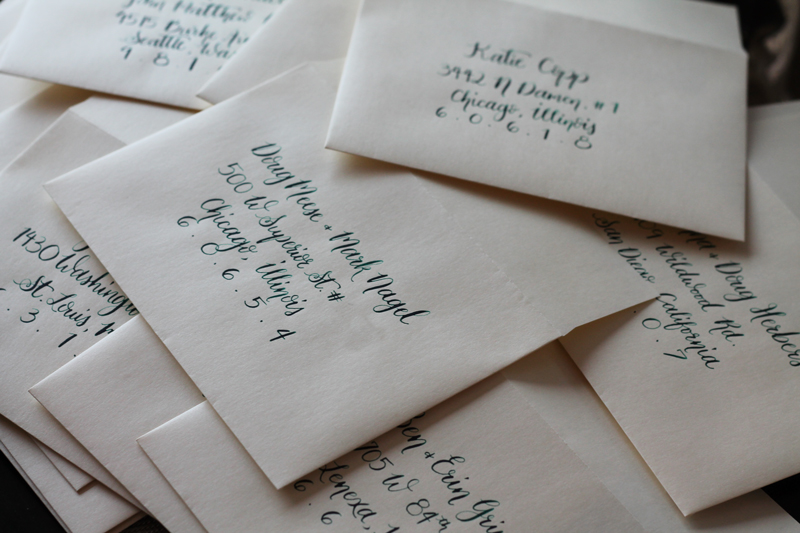 John Matthew
Seattle, Wa
9 8 1
Katie Cipp
3992 N Damen. #1
Chicago, Illinois
6 . 0 . 6 . 1 . 8
Doug Muse + Mark Nagel
500 W Superior St. #
Chicago, Illinois
6 . 0 . 6 . 5 . 4
1930 Washingt
St. Louis,
3 . 1
+ Doug Herbers
Wildwood Rd.
San Diego California
0 . 7
en + Erin Gri
705 W 84
Lenexa,
6 . 6